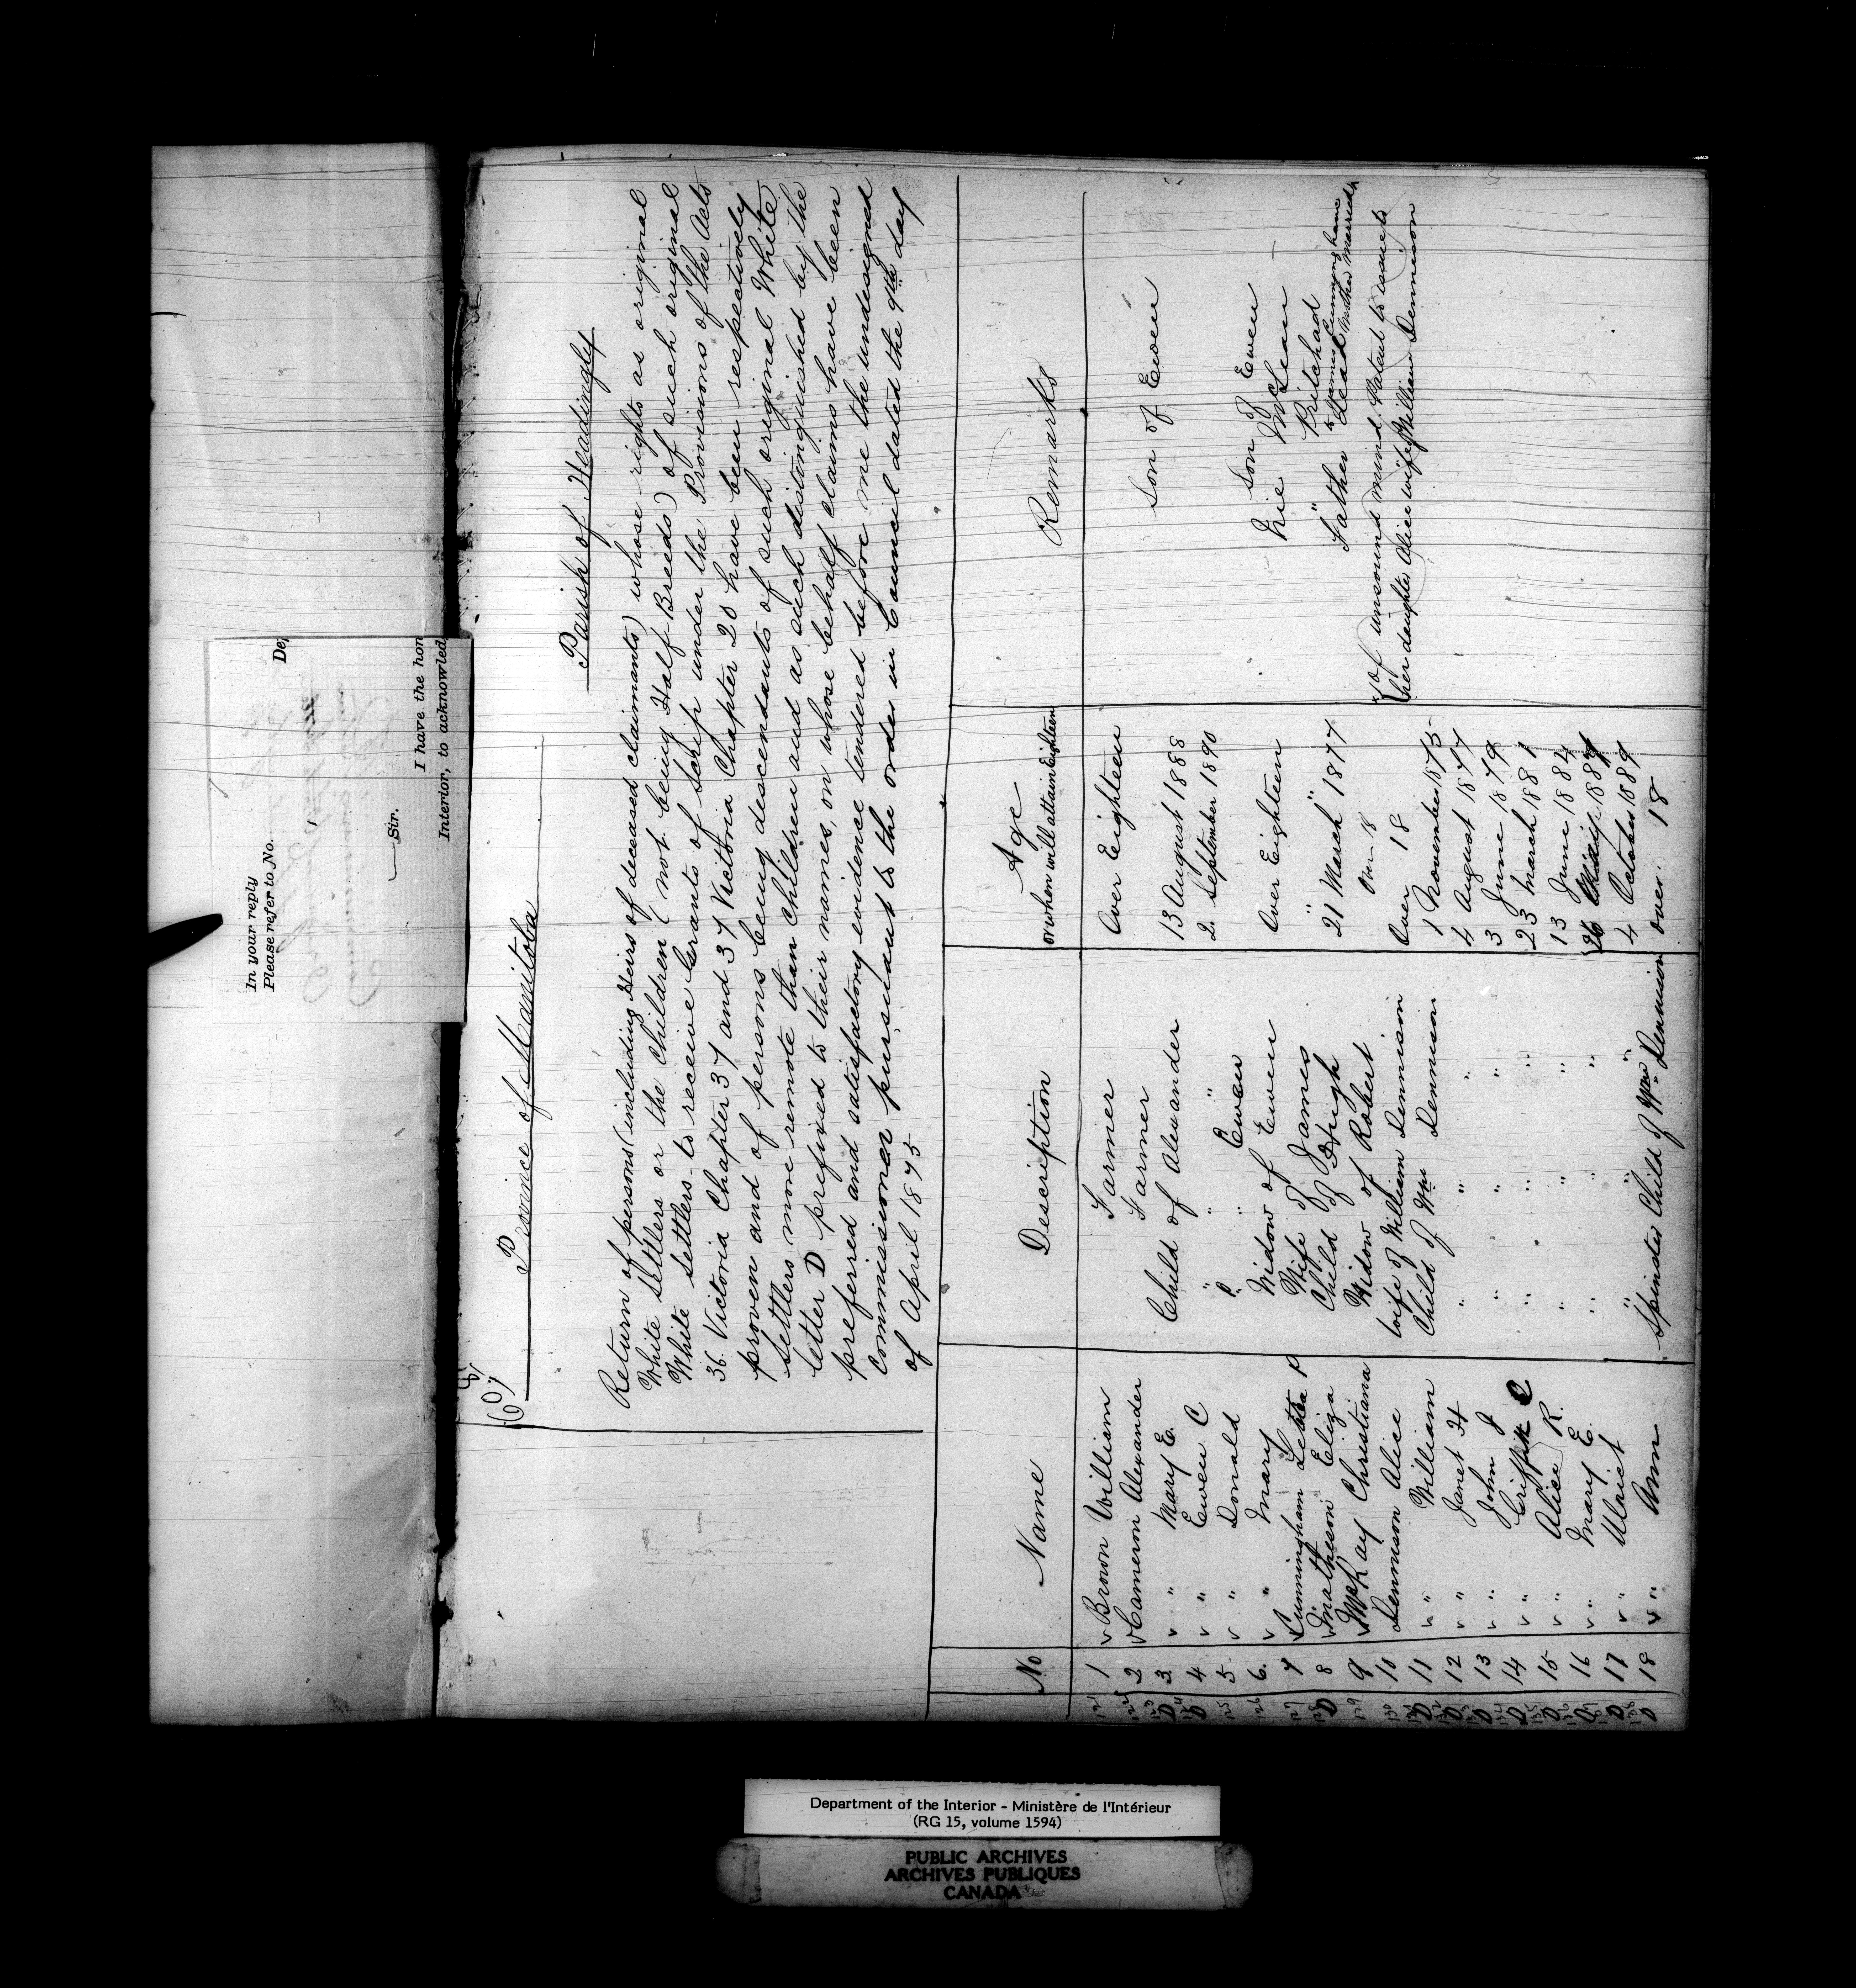 In your reply
Please refer to No.
De
Sir.
I have the hon
Interior, to acknowled
607
Province of Manitoba
Parish of Headingly
Return of persons (including Heirs of deceased claimants) whose rights as original
White Settlers or the Children (not being Half Breeds) of such original
White Settlers to receive Grants of Scrip under the Provisions of the Acts
36 Victoria Chapter 37 and 37 Victoria Chapter 20 have been respectively
proven and of persons being descendants of such original White
Settlers more remote than Children and as such distinguished by the
letter D prefixed to their names, on whose behalf claims have been
preferred and satisfactory evidence tendered before me the undersigned
Commissioner pursuant to the order in Council dated the 9th day
of April 1875
No Name Description Age or when will attain Eighteen Remarks
121 1 v Brown William Farmer Over Eighteen
122 2 v Cameron Alexander Farmer Son of Ewen
123 D 3 v " Mary E. Child of Alexander 13 August 1888
124 D 4 v " Ewen C " " " 2 September 1890
125 5 v " Donald " Ewen Son of Ewen
126 6. v " Mary Widow of Ewen Over Eighteen Née McLean
127 7 v Cunningham Letitia P Wife of James " " " Pritchard
128 D 8 v Matheson Eliza Child of Hugh 21 March 1877 Father dead Mother Married to James Cunningham
129 9 v McKay Christiana Widow of Robert Over 18
130 10 Dennison Alice wife of William Dennison Over 18 x of unsound mind, Patent to issue to
her daughter Alice wife of William Dennison
131 D 11 v " William Child of Wm Dennison 1 November 1875
132 D 12 v " Janet H " " " 4 August 1877
133 D 13 v " John J " " " 3 June 1879
134 D 14 v " C " " " 23 March 1881
135 D 15 v " Alice R. " " " 13 June 1884
136 D 16 v " Mary E. " " " 26
137 D 17 v " Ulrict " " " 4 October 1889
138 D 18 v " Ann Spinster Child of Wm Dennison over 18
Department of the Interior - Ministère de l'Intérieur
(RG 15, volume 1594)
PUBLIC ARCHIVES
ARCHIVES PUBLIQUES
CANADA